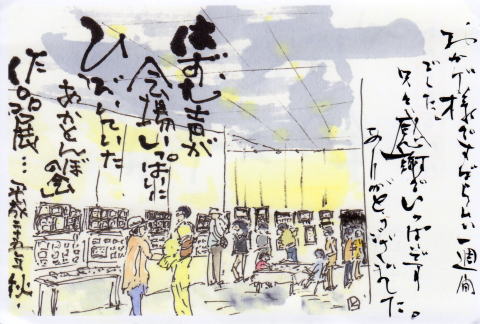 おかげ様ですばらしい一週間
でした。
只々感謝でいっぱいです
ありがとうございました。
はずむ声が
会場いっぱいに
ひびいていた
あかとんぼの会
作品展…